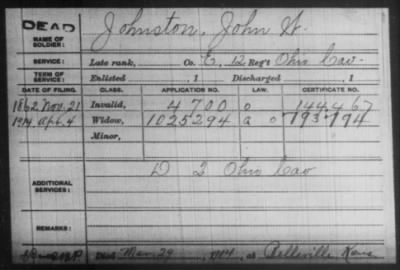 DEAD
NAME OF SOLDIER: Johnston, John H.
SERVICE: Late rank, Co. E, 12 Reg't Ohio Cav.
TERM OF SERVICE: Enlisted , 1 Discharged , 1
DATE OF FILING. CLASS. APPLICATION NO. LAW. CERTIFICATE NO.
1862 Nov. 21 Invalid, 4700 o 144,467
1914 Apr. 4 Widow, 1025294 a o
Minor,
ADDITIONAL SERVICES: D 2 Ohio Cav
REMARKS:
Died Mar 29, 1914, at Belleville Kans